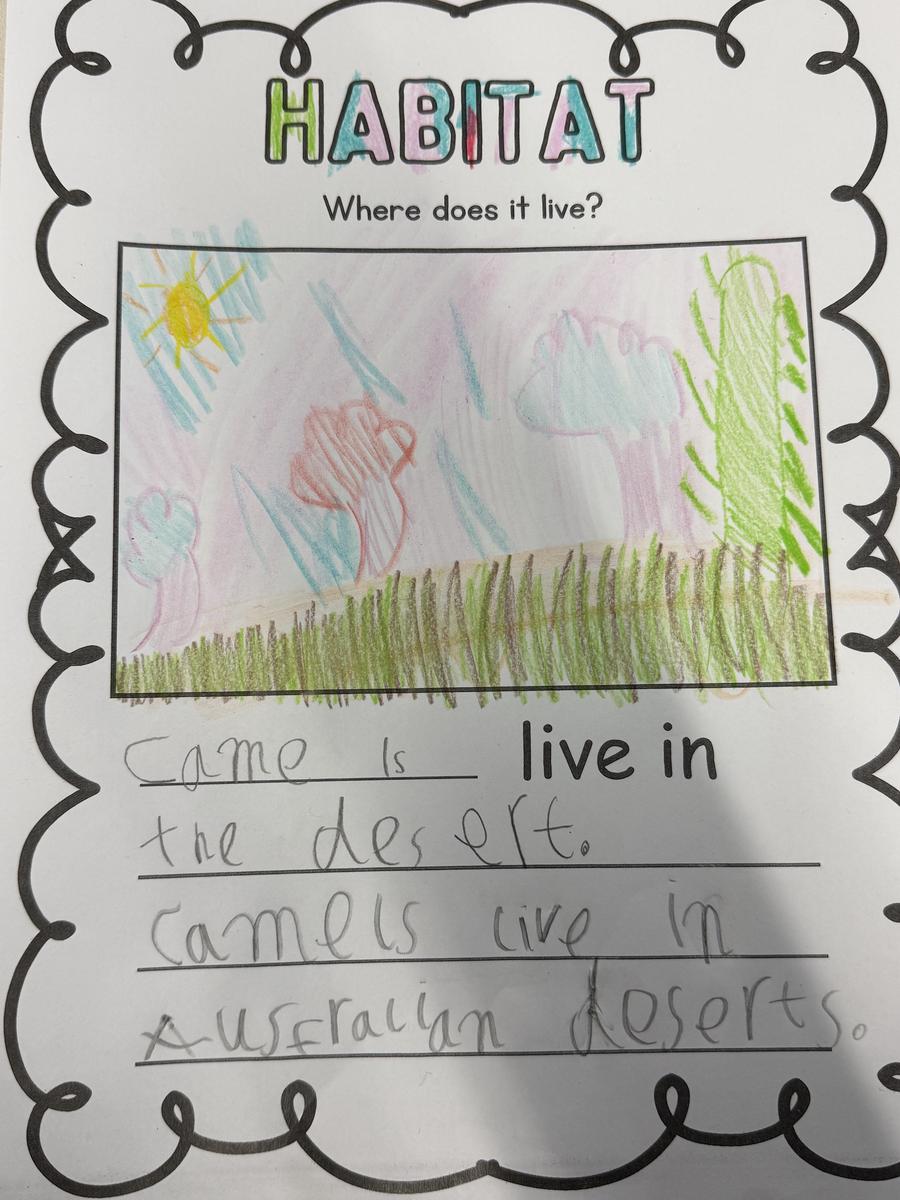 HABITAT
Where does it live?
Came ls live in
the desert.
Camels live in
Australian deserts.